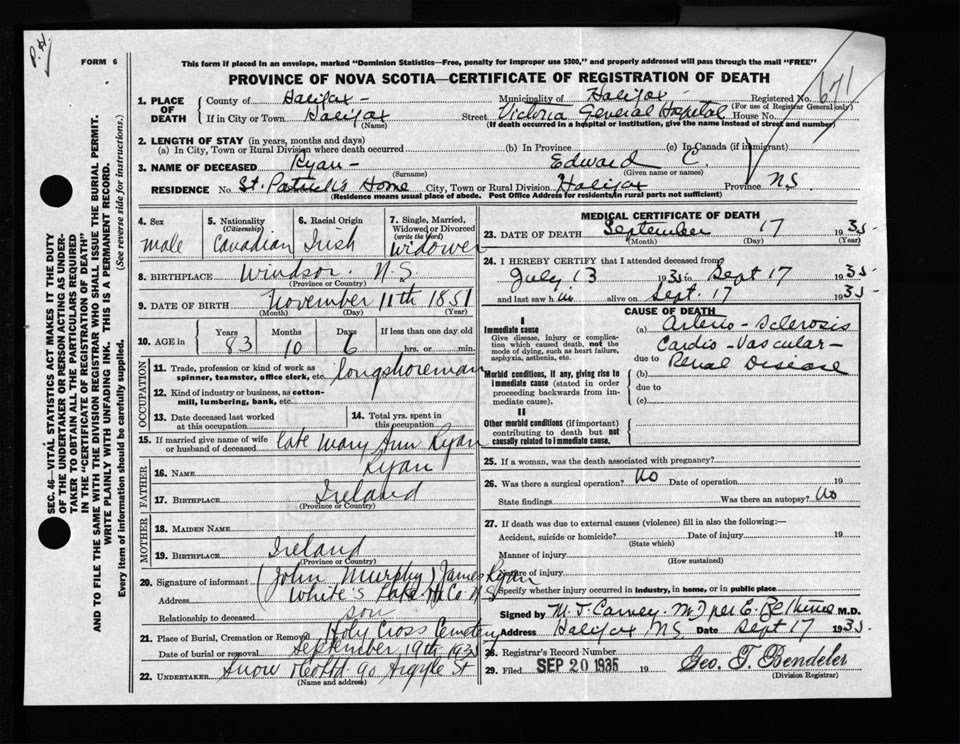 P.H.
FORM 6
This form if placed in an envelope, marked "Dominion Statistics—Free, penalty for improper use $300," and properly addressed will pass through the mail "FREE"
PROVINCE OF NOVA SCOTIA—CERTIFICATE OF REGISTRATION OF DEATH
671
1. PLACE OF DEATH County of Halifax Municipality of Halifax Registered No. (For use of Registrar General only)
If in City or Town Halifax (Name) Street Victoria General Hospital House No.
(If death occurred in a hospital or institution, give the name instead of street and number)
2. LENGTH OF STAY (in years, months and days)
(a) In City, Town or Rural Division where death occurred (b) In Province (c) In Canada (if immigrant)
3. NAME OF DECEASED Ryan (Surname) Edward C. (Given name or names)
RESIDENCE No. St. Patrick's Home City, Town or Rural Division Halifax Province N.S.
(Residence means usual place of abode. Post Office Address for residents in rural parts not sufficient)
4. Sex male
5. Nationality (Citizenship) Canadian
6. Racial Origin Irish
7. Single, Married, Widowed or Divorced (write the word) Widower
8. BIRTHPLACE Windsor. N.S (Province or Country)
9. DATE OF BIRTH November 11th 1851
(Month) (Day) (Year)
10. AGE in Years 83 Months 10 Days 6 If less than one day old hrs. or min.
OCCUPATION
11. Trade, profession or kind of work as spinner, teamster, office clerk, etc. longshoreman
12. Kind of industry or business, as cotton-mill, lumbering, bank, etc.
13. Date deceased last worked at this occupation
14. Total yrs. spent in this occupation
15. If married give name of wife or husband of deceased late Mary Ann Ryan
FATHER
16. NAME Ryan
17. BIRTHPLACE Ireland
(Province or Country)
MOTHER
18. MAIDEN NAME
19. BIRTHPLACE Ireland
(Province or Country)
20. Signature of informant (John Murphy) James Ryan
Address White's Lake Hx Co. N.S
Relationship to deceased son
21. Place of Burial, Cremation or Removal Holy Cross Cemetery
Date of burial or removal September 19th 1935
22. UNDERTAKER Snow & Co Ltd 90 Argyle St
(Name and address)
MEDICAL CERTIFICATE OF DEATH
23. DATE OF DEATH September 17 1935
(Month) (Day) (Year)
24. I HEREBY CERTIFY that I attended deceased from
July 13 1935 to Sept 17 1935
and last saw h im alive on Sept. 17 1935
CAUSE OF DEATH
I
Immediate cause (a) Arterio-Sclerosis
Give disease, injury or complication which caused death, not the mode of dying, such as heart failure, asphyxia, asthenia, etc.
Cardio-Vascular-
due to Renal Disease
Morbid conditions, if any, giving rise to immediate cause (stated in order proceeding backwards from immediate cause).
(b)
due to
(c)
II
Other morbid conditions (if important) contributing to death but not causally related to immediate cause.
25. If a woman, was the death associated with pregnancy?
26. Was there a surgical operation? No Date of operation 19
State findings Was there an autopsy? No
27. If death was due to external causes (violence) fill in also the following:—
Accident, suicide or homicide? Date of injury 19
(State which)
Manner of injury
(How sustained)
Nature of injury
Specify whether injury occurred in industry, in home, or in public place
Signed by M. J. Carney. M.D per E. M.D.
Address Halifax N.S Date Sept 17 1935
28. Registrar's Record Number
29. Filed SEP 20 1935 19 Geo. T. Bendeler
(Division Registrar)
SEC. 46—VITAL STATISTICS ACT MAKES IT THE DUTY
OF THE UNDERTAKER OR PERSON ACTING AS UNDER-
TAKER TO OBTAIN ALL THE PARTICULARS REQUIRED
IN THE "CERTIFICATE OF REGISTRATION OF DEATH"
AND TO FILE THE SAME WITH THE DIVISION REGISTRAR WHO SHALL ISSUE THE BURIAL PERMIT.
WRITE PLAINLY WITH UNFADING INK. THIS IS A PERMANENT RECORD.
Every item of information should be carefully supplied. (See reverse side for instructions.)